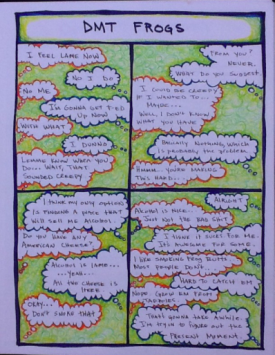 DMT FROGS
I FEEL LAME NOW
NO I DO
NO ME
I'M GONNA GET F-ED
UP NOW
WITH WHAT
I DUNNO
LEMME KNOW WHEN YOU
DO... WAIT, THAT
SOUNDED CREEPY
FROM YOU?
NEVER.
WHAT DO YOU SUGGEST
I COULD BE CREEPY
IF I WANTED TO...
MAYBE...
WELL, I DON'T KNOW
WHAT YOU HAVE
BASICALLY NOTHING, WHICH
IS PROBABLY THE PROBLEM.
HMMM... YOU'RE MAKING
THIS HARD...
I THINK MY ONLY OPTION
IS FINDING A PLACE THAT
WILL SELL ME ALCOHOL
DO YOU HAVE ANY
AMERICAN CHEESE?
ALCOHOL IS LAME...
...YEAH...
ALL THE CHEESE IS
HERE
OKAY...
DON'T SMOKE THAT
ALRIGHT
ALCOHOL IS NICE...
JUST NOT THE BAD SHIT
I THINK IT'S OVER FOR ME.
IT'S AWESOME FOR SOME.
I LIKE SMOKING FROG BUTTS
MOST PEOPLE DON'T.
HARD TO CATCH EM
NOPE GROW EM FROM
TADPOLES
THAT'S GONNA TAKE AWHILE
I'M TRYIN TO FIGURE OUT THE
PRESENT MOMENT